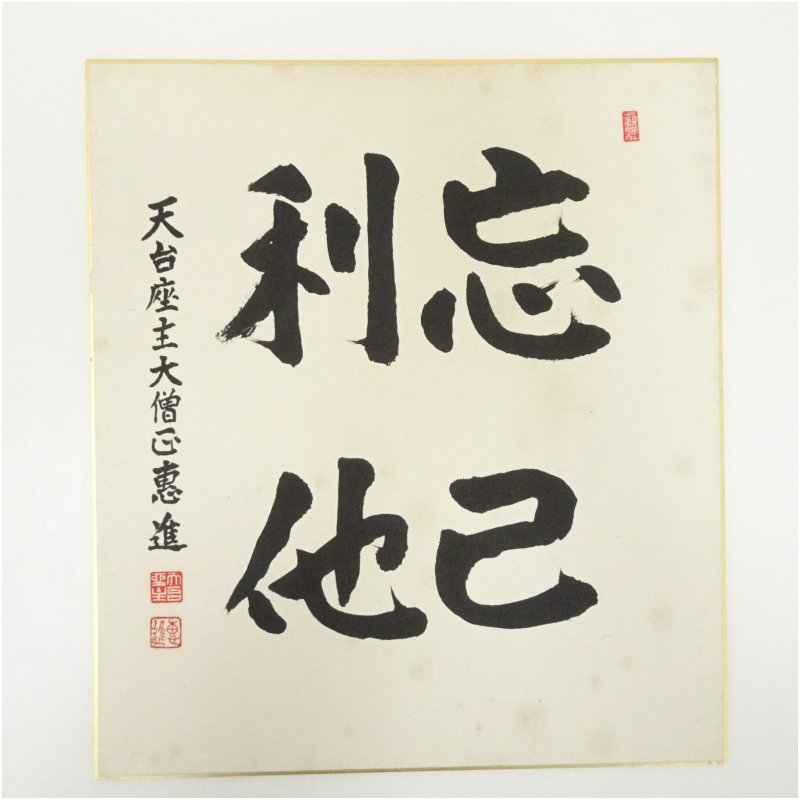 忘己
利他
天台座主大僧正惠進